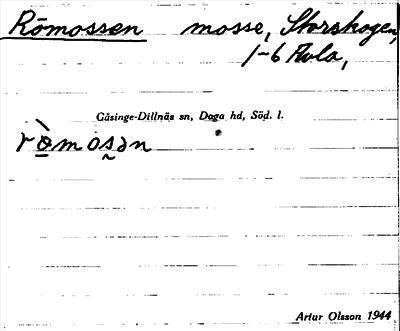 Römossen mosse, Storskogen,
1-6 Åvla,
Gåsinge-Dillnäs sn, Daga hd, Söd. l.
rò̱mos̰ən
Artur Olsson 1944